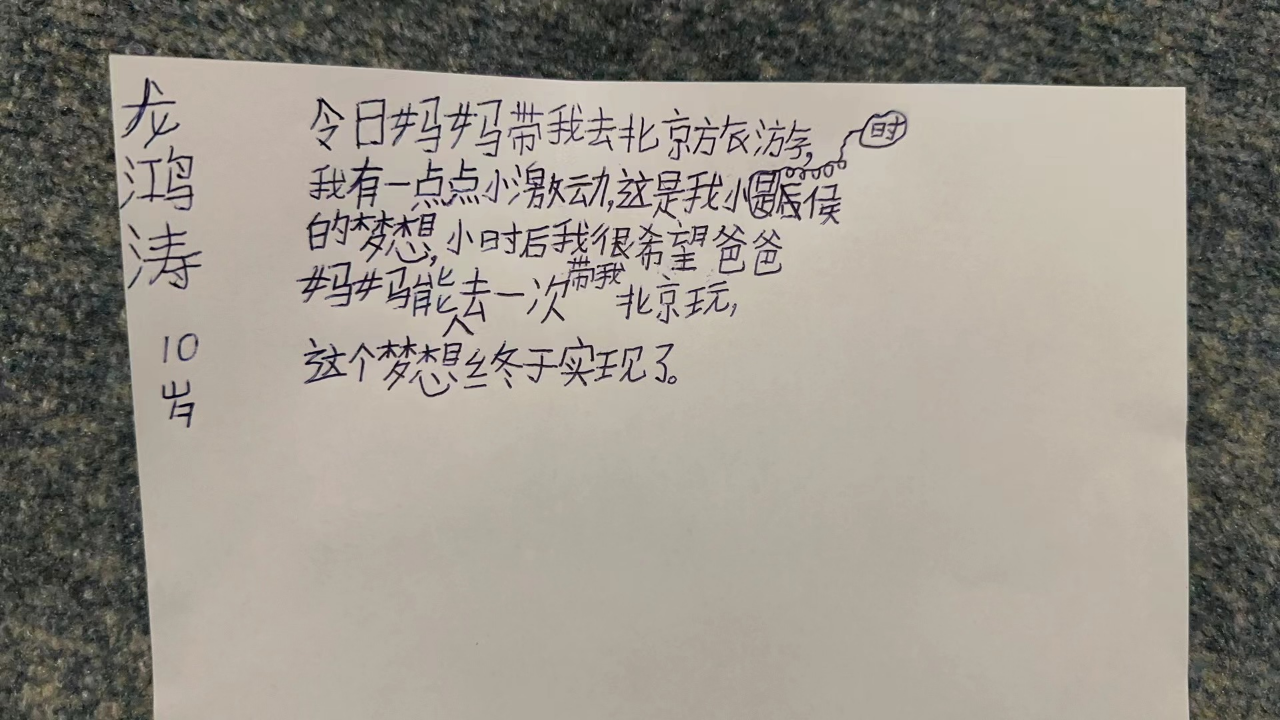 龙鸿涛
10岁
今日妈妈带我去北京旅游,
我有一点点小激动,这是我小时候
的梦想,小时后我很希望爸爸
妈妈能去一次带我北京玩,
这个梦想终于实现了。